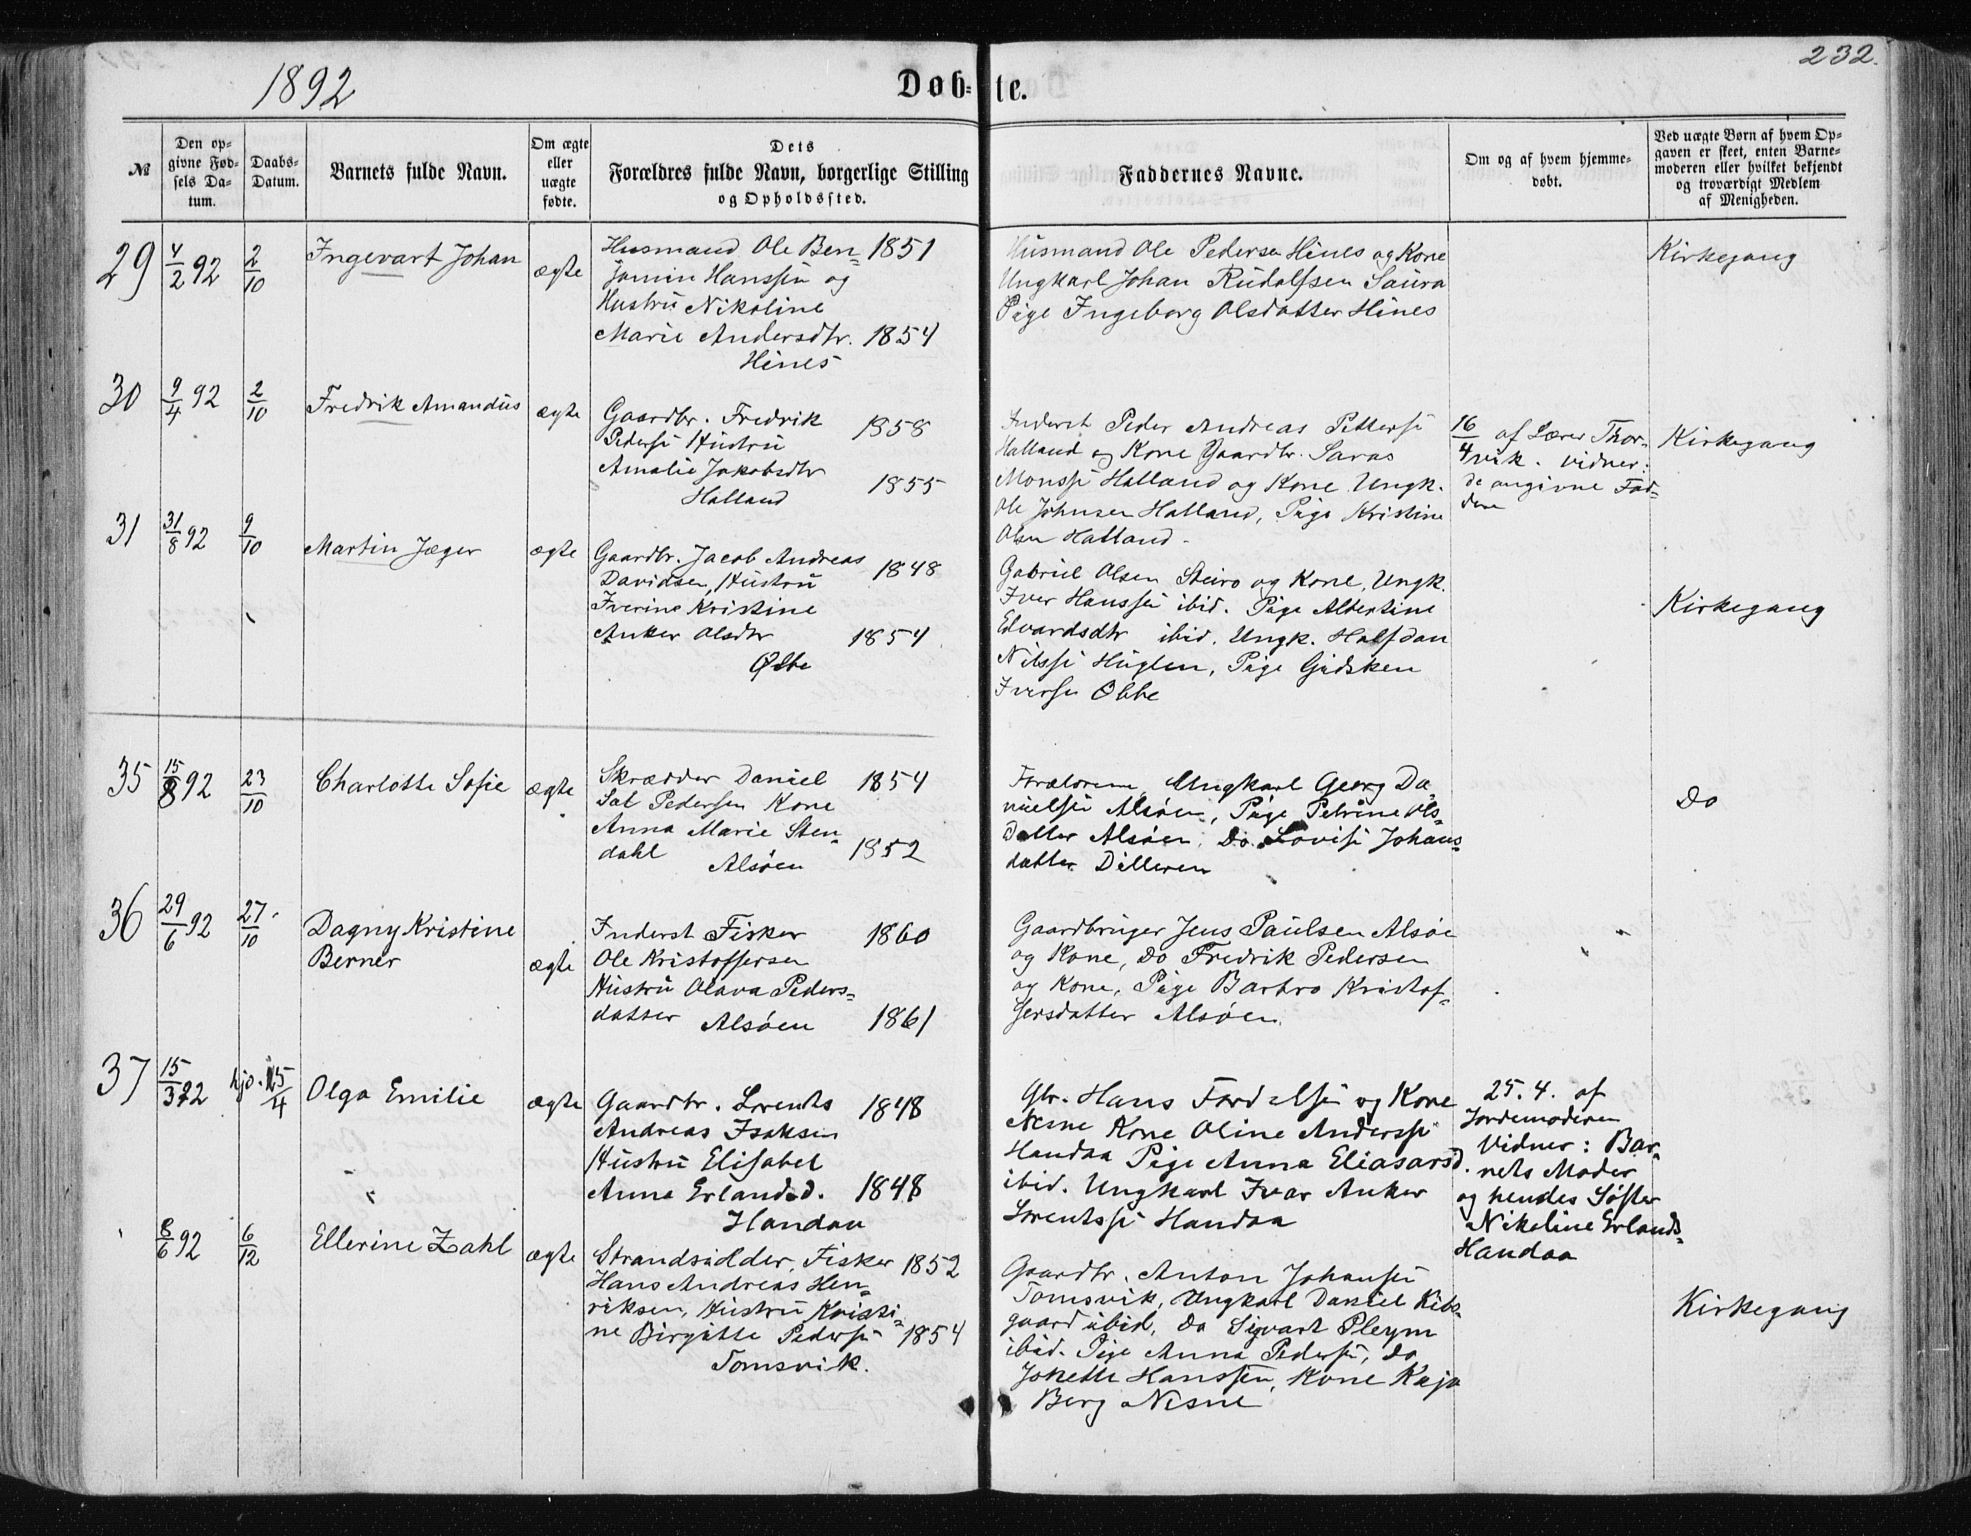 232.
1892
Døb-
te.
№
Den op-
givne Fød-
sels Da-
tum.
Daabs-
Datum.
Barnets fulde Navn.
Om ægte
eller
uægte
fødte.
Dets
Forældres fulde Navn, borgerlige Stilling
og Opholdssted.
Faddernes Navne.
Om og af hvem hjemme-
døbt.
Ved uægte Børn af hvem Op-
gaven er skeet, enten Barne-
moderen eller hvilket bekjendt
og troværdigt Medlem
af Menigheden.
29
4/2 92
2/10
Ingevart Johan
ægte
Husmand Ole Ben= 1851
jamin Hanssen og
Hustru Nikoline
Marie Andersdtr. 1854
Hines
Husmand Ole Pedersen Hines og Kone
Ungkarl Johan Rudolfsen Saura
Pige Ingeborg Olsdatter Hines
Kirkegang
30
9/4 92
2/10
Fredrik Amandus
ægte
Gaardbr. Fredrik
Peders. Hustru 1858
Amalie Jakobsdtr
Halland 1855
Inderst Peder Andreas Petters.
Halland og Kone Gaardbr. Saras
Monss. Halland og Kone Ungk.
Ole Johnsen Halland, Pige Kristine
Olsen Halland.
16/4 af Lærer Thor-
vik. Vidner:
de angivne Fad-
dere
Kirkegang
31
31/8 92
9/10
Martin Jæger
ægte
Gaardbr. Jacob Andreas
Davidsen, Hustru 1848
Iverine Kristine
Anker Olsdtr 1854
Øbbe
Gabriel Olsen Steiro og Kone, Ungk.
Iver Hanssen ibid. Pige Albertine
Edvardsdtr ibid. Ungk. Halfdan
Nilss. Huglen, Pige Gidsken
Ivers. Øbbe
Kirkegang
35
15/8 92
23/10
Charlotte Sofie
ægte
Skrædder Daniel 1854
Sal Pedersen Kone
Anna Marie Sten-
dahl 1852
Alsøen
Forældrene, Ungkarl Georg Da-
nielsen Alsøen, Pige Petrine Ols-
datter Alsøen, Do Lovise Johans-
datter Dilleren
Do
36
29/6 92
27/10
Dagny Kristine
Berner
ægte
Inderst Fisker 1860
Ole Kristoffersen
Hustru Olava Peders=
datter Alsøen 1861
Gaardbruger Jens Paulsen Alsøe
og Kone, Do Fredrik Pedersen
og Kone, Pige Barbro Kristof-
fersdatter Alsøen.
37
15/3 92
hjd. 25/4
Olga Emilie
ægte
Gaardbr. Lorents 1848
Andreas Isaksen
Hustru Elisabet
Anna Erlandsd. 1848
Handaa
Gbr. Hans og Kone
Nesne Kone Oline Anderss.
Handaa Pige Anna Eliasarsd.
ibid. Ungkarl Ivar Anker
Lorentss. Handaa
25. 4. af
Jordemoderen
Vidner: Bar-
nets Moder
og hendes Søster
Nikoline Erlands-
Handaa
8/6 92
6/12
Ellerine Zahl
ægte
Strandsidder, Fisker 1852
Hans Andreas Hen-
riksen, Hustru Kristi-
ne Birgitte Peders. 1854
Tomsvik.
Gaardbr. Anton Johansen
Tomsvik, Ungkarl Daniel Kibs-
gaard ibid, Do Sigvart Pleym
ibid. Pige Anna Peders., Do
Jokette Hanssen, Kone Kaja
Berg Nesne
Kirkegang